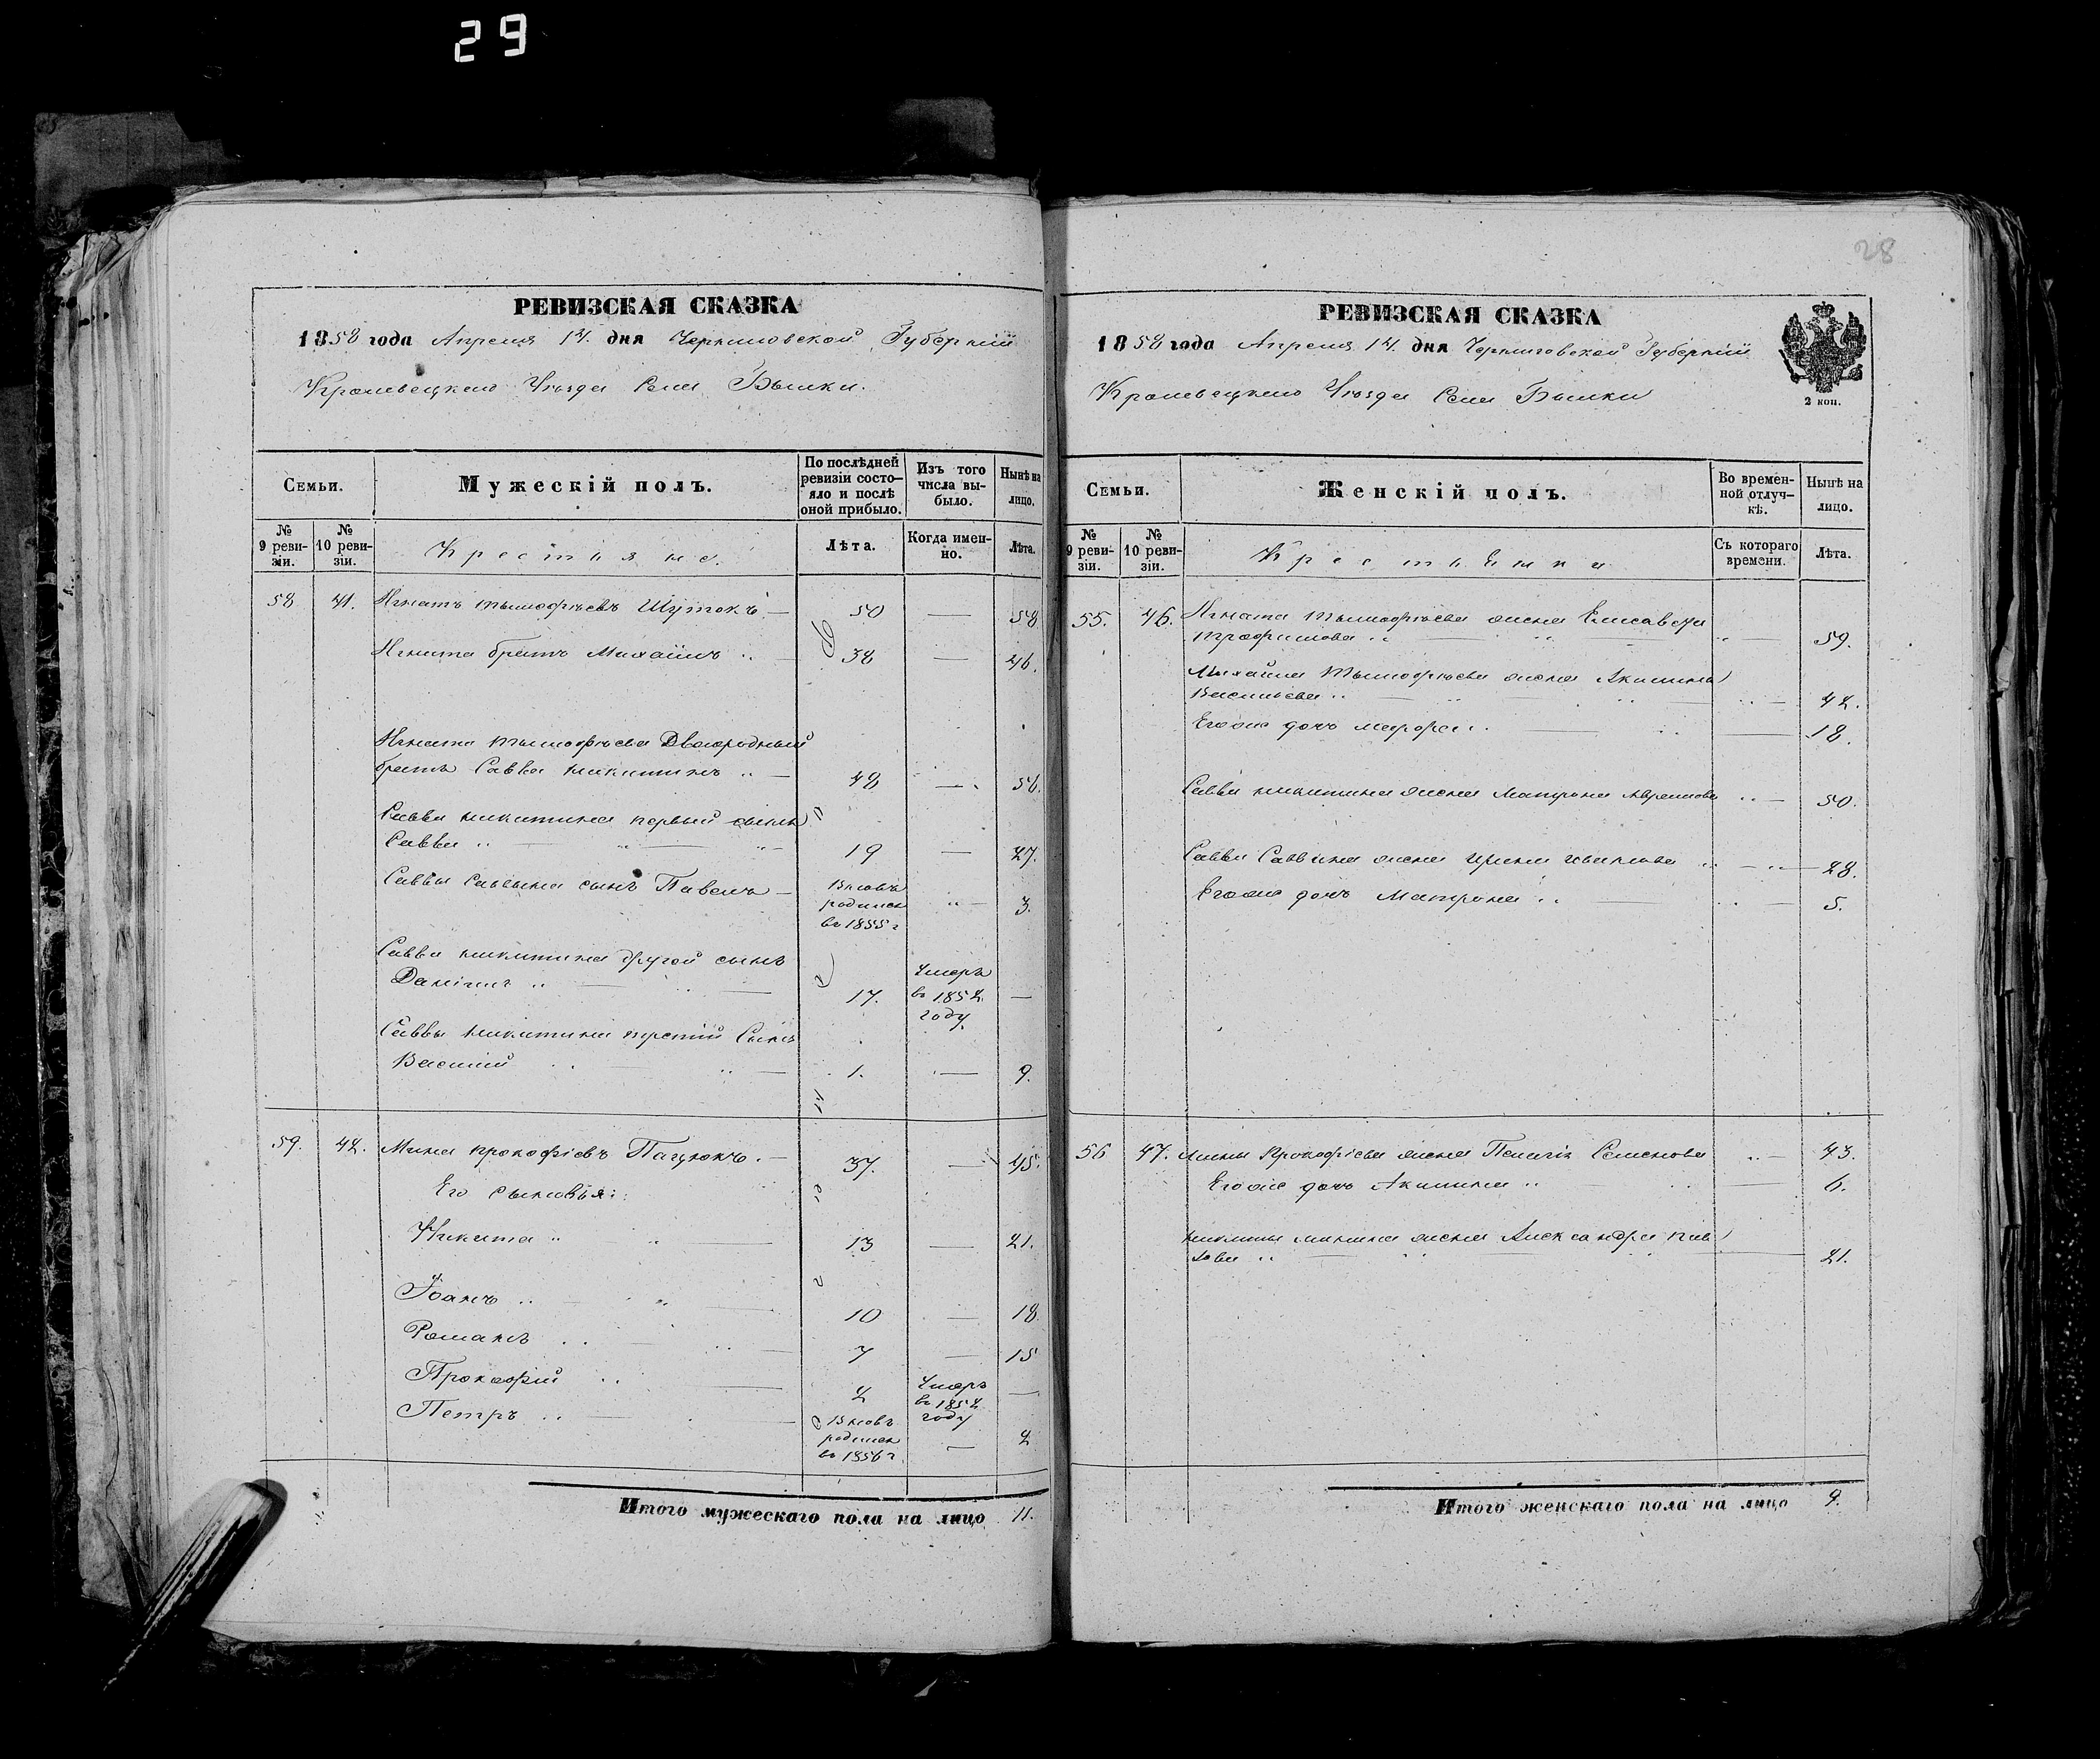 29
28
РЕВИЗСКАЯ СКАЗКА
1858 года Апреля 14. дня Черниговской Губерніи
Кролевецкаго Уѣзда Села Быики.
Семьи.
Мужескій полъ.
По послѣдней ревизіи состояло и послѣ оной прибыло.
Изъ того числа выбыло.
Нынѣ на лицо.
№ 9 ревизіи.
№ 10 ревизіи.
Крестьяне.
Лѣта.
Когда именно.
Лѣта.
58 41. Игнатъ Тимофѣевъ Шутокъ 50 — 58
Игната братъ Михаилъ 38 — 46.
Игната Тимофѣева Двоюродный
братъ Савва Никитинъ 48 — 56.
Саввы Никитина первый сынъ
Савва 19 — 27.
Саввы Саввина сынъ Павелъ — Вновь 3.
родился
въ 1855 г
Саввы Никитина другой сынъ
Даніилъ 17. Умеръ —
въ 1852.
году
Саввы Никитина третій Сынъ
Василій 1. — 9.
59. 42. Мина Прокофіевъ Пацюкъ. — 37. — 45.
Его сыновья:
Никита 13 — 21.
Іоанъ 10 — 18.
Романъ 7 — 15
Прокофій 2 Умеръ —
въ 1852
году
Петръ Вновь — 2
родился
въ 1856 г.
Итого мужескаго пола на лицо 11.
РЕВИЗСКАЯ СКАЗКА
1858 года Апреля 14. дня Черниговской Губерніи
Кролевецкаго Уѣзда Села Быики
2 коп.
Семьи.
Женскій полъ.
Во временной отлучкѣ.
Нынѣ на лицо.
№ 9 ревизіи.
№ 10 ревизіи.
Крестьянки
Съ котораго времени.
Лѣта.
55. 46. Игната Тимофѣева жена Елисавета
Трофимова 59.
Михайла Тимофѣева жена Акилина
Васильева 42.
Его же дочь 18.
Саввы Никитина жена Матрона 50.
Саввы Саввина жена Ирина Іванова 28.
Его же дочь Матрона 5.
56 47. Мины Прокофіева жена Пелагія Семенова 43.
Его же дочь Акилина 6.
Никиты Минина жена Александра Пав
лова 21.
Итого женскаго пола на лицо 9.